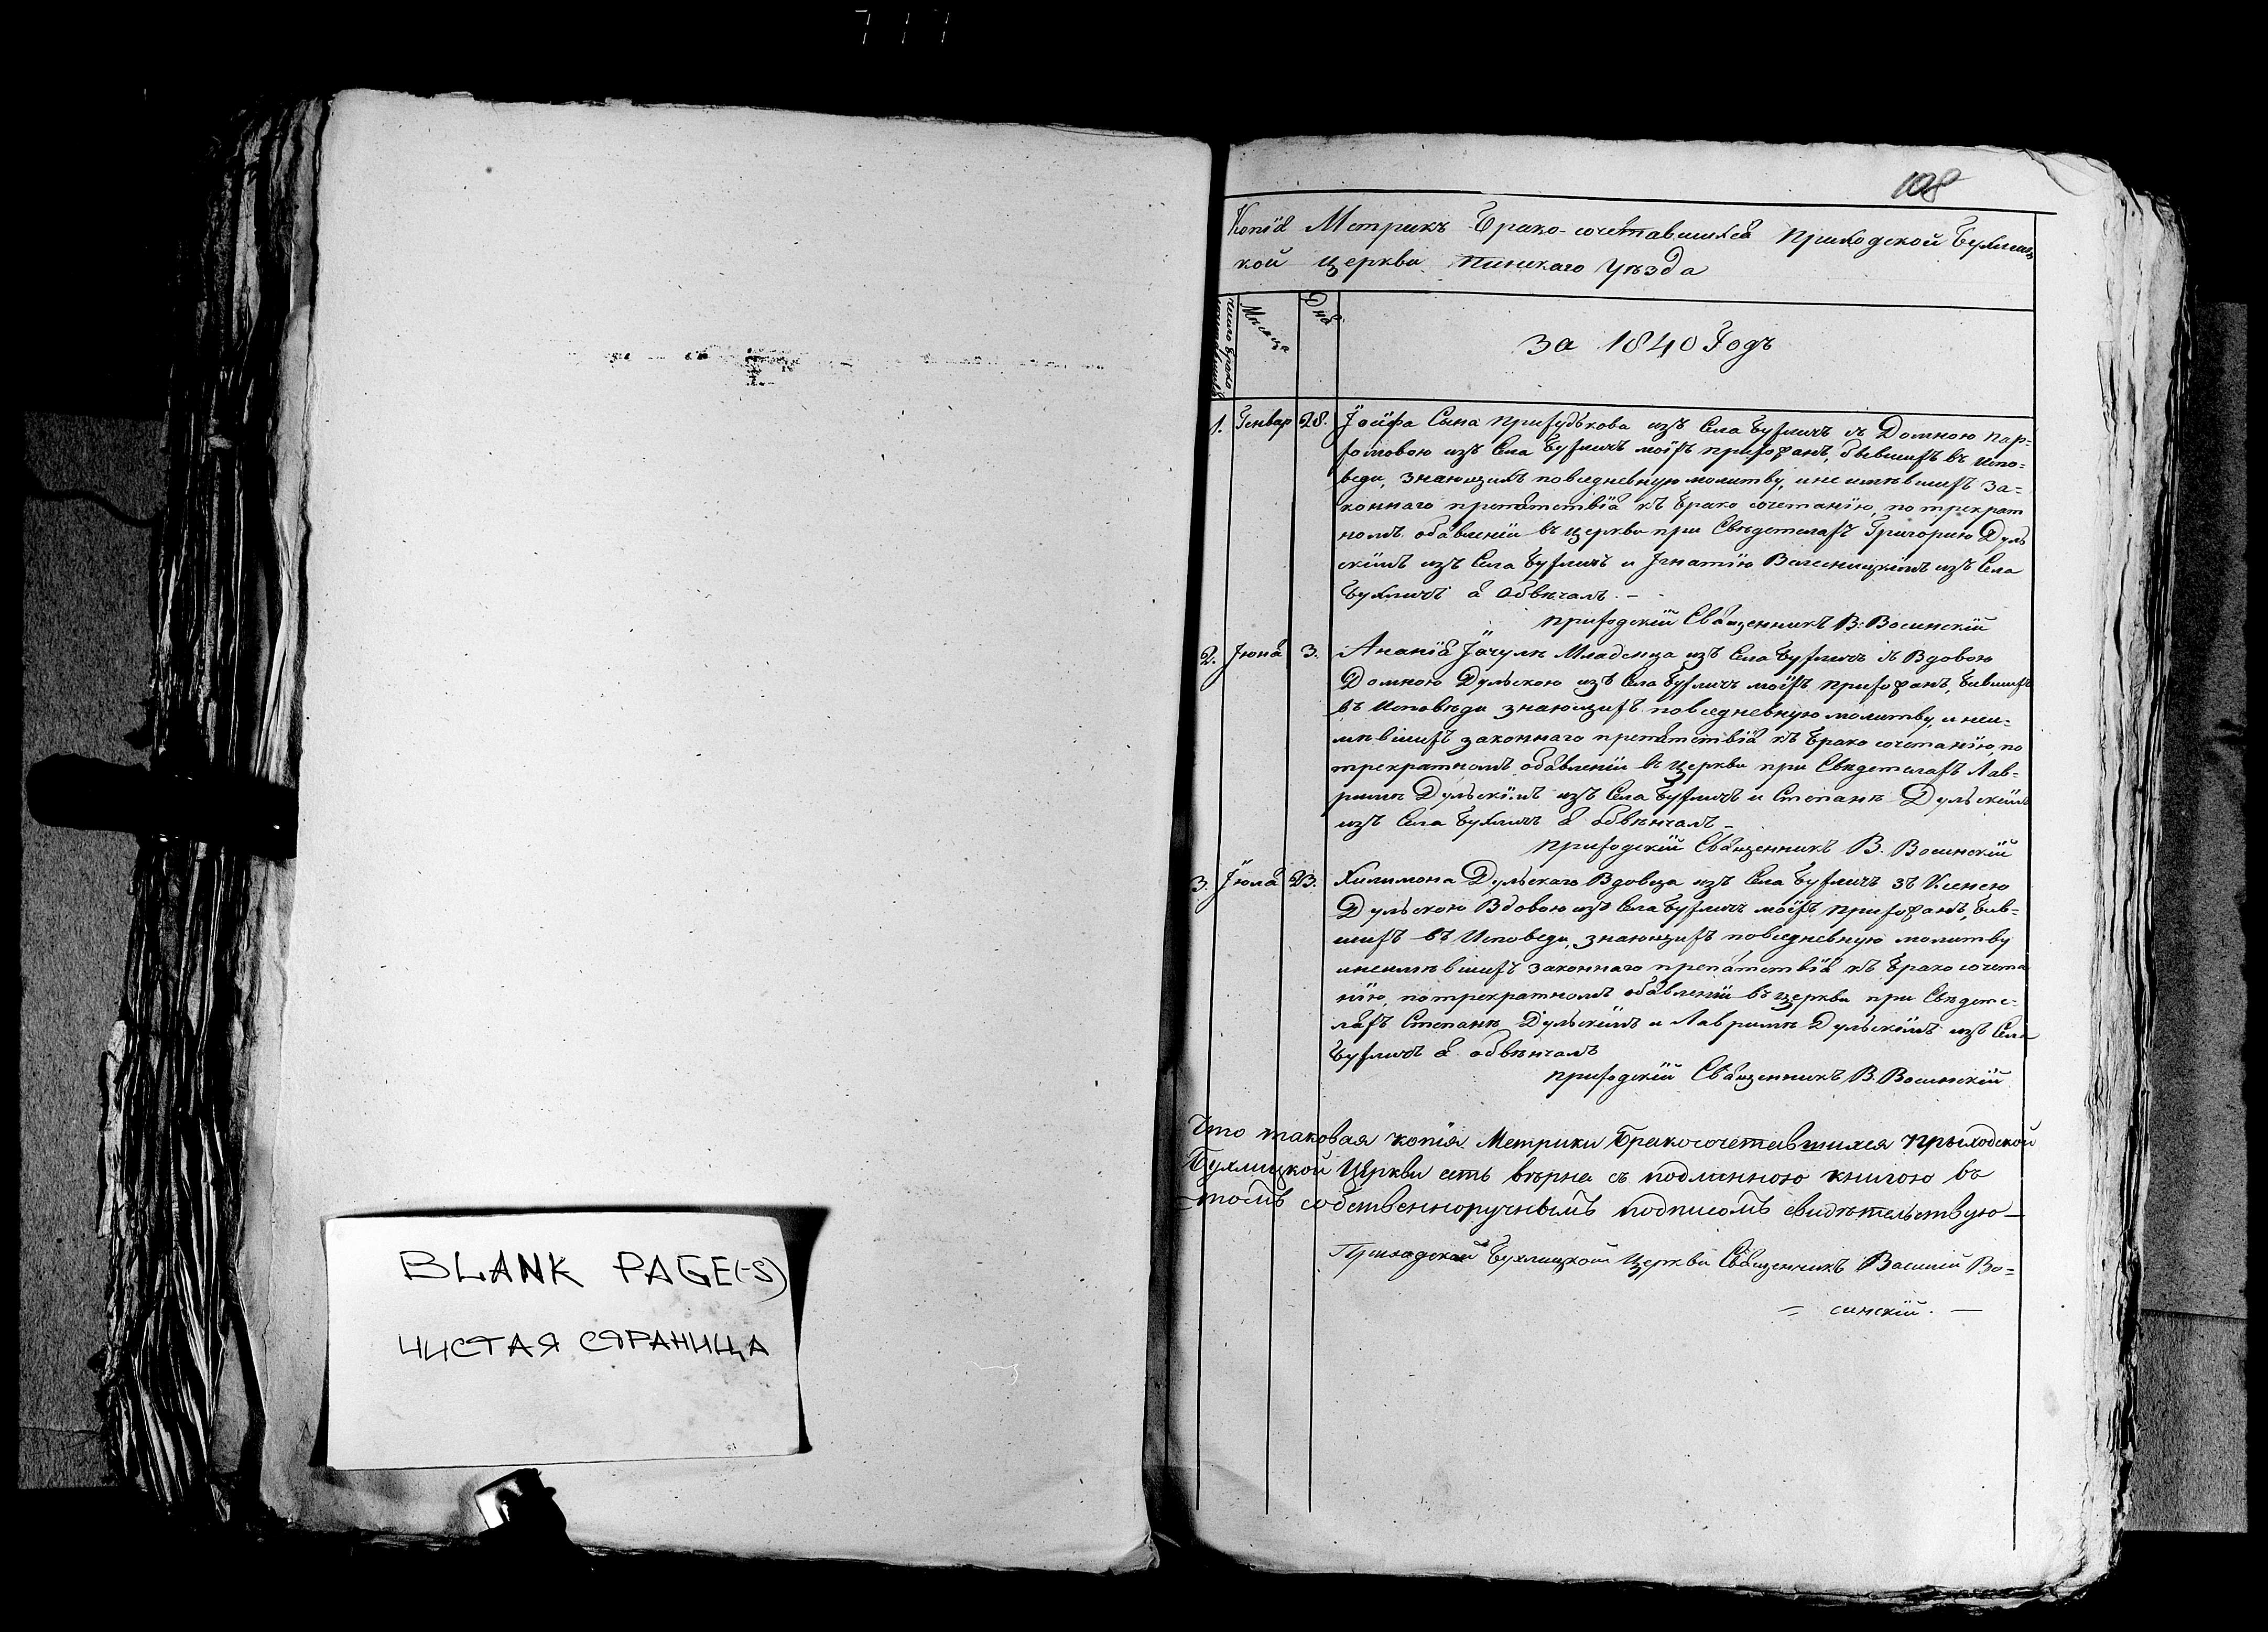 108
Копія Метрикъ Брако-сочетавшихся Приходской Бухлиц
кой церкви Пинскаго Уѣзда
Число брако
Мѣсяца
Дня
За 1840 Годъ
1. Генвар 28. Іосифа Сына из Села Бухличъ съ Домною Пар=
фомовою изъ Села Бухличъ моихъ прихожанъ, бывшихъ въ испо=
веди, знающихъ повседневную молитву, и не имѣвшихъ за=
коннаго препятствія къ брако сочетанію, по трекрат
номъ обявленіи въ церкви при Свѣдетеляхъ Григорію Дуль
скимъ изъ Села Бухличъ и Ігнатію изъ Села
Бухличъ я обвѣчалъ. –
приходскій Священникъ В: Восинскій
2. Іюня 3. Ананія Младенца изъ Села Бухличъ съ Вдовою
Домною Дульскою изъ Села Бухличъ моихъ прихожанъ, бившихъ
въ Исповѣди знающихъ повседневную молитву, и неи=
мѣвшихъ законнаго препятствія къ брако сочетанію, по
трекратномъ обявленіи въ церкви при Свѣдетеляхъ Лав=
римъ Дульскимъ изъ Села Бухличъ и Степанъ Дульскимъ
изъ Села Бухличъ я обвѣнчалъ –
приходскій Священникъ В. Восинскій
3. Іюля 23. Хилимона Дульскаго Вдовца изъ Села Бухличъ зъ Ксенею
Дульскою Вдовою изъ Села Бухличъ моихъ прихожанъ, бив=
шихъ въ Исповеди, знающихъ повседневную молитву
инеимѣвшихъ законнаго препятствія къ брако сочета
нію, по трекратномъ обявленіи въ церкви при Свѣдете=
ляхъ Степанъ Дульскимъ и Лавримъ Дульскимъ изъ Села
Бухличъ я обвѣнчалъ
приходскій Священникъ В. Восинскій
Что таковая копія Метрики Бракосочетавшихся Прыходской
Бухлицкой Церкви есть вѣрна съ подлинною книгою въ
томъ собственноручнымъ подписомъ свидѣтельствую –
Приходской Бухлицкой Церкви Священникъ Василій Во=
= синскій. –
BLANK PAGE(-S)
ЧИСТАЯ СТРАНИЦА